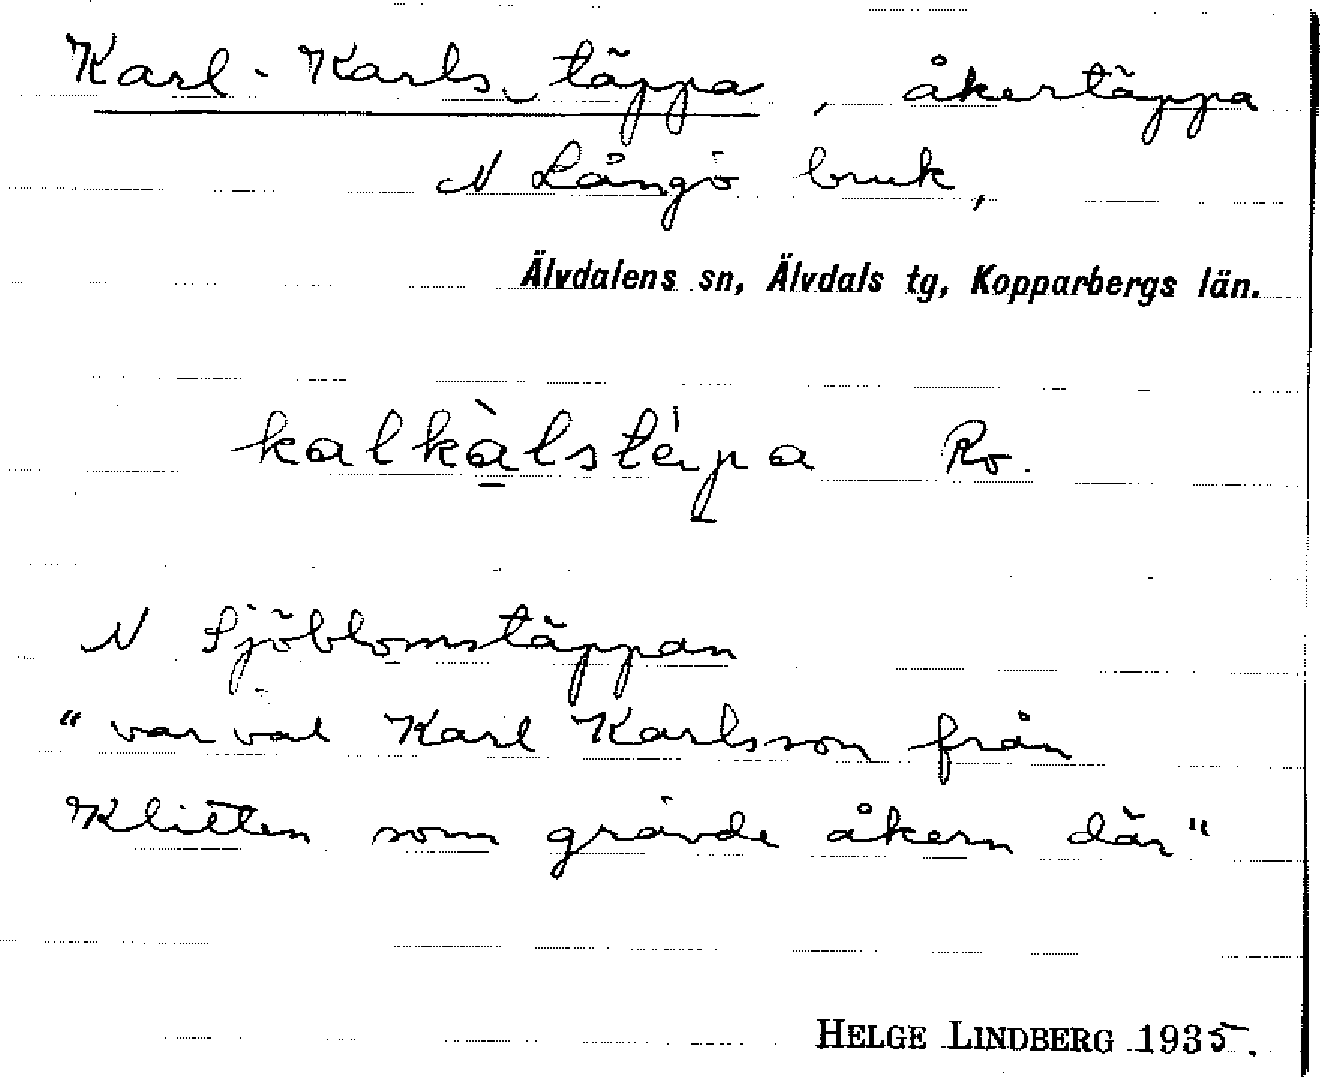 Karl-Karls täppa, åkertäppa
N Långö bruk,
Älvdalens sn, Älvdals tg, Kopparbergs län.
kalkàlstépa Ro.
N Sjöblomstäppan
"var väl Karl Karlsson från
Klitten som grävde åkern där"
HELGE LINDBERG 1935.